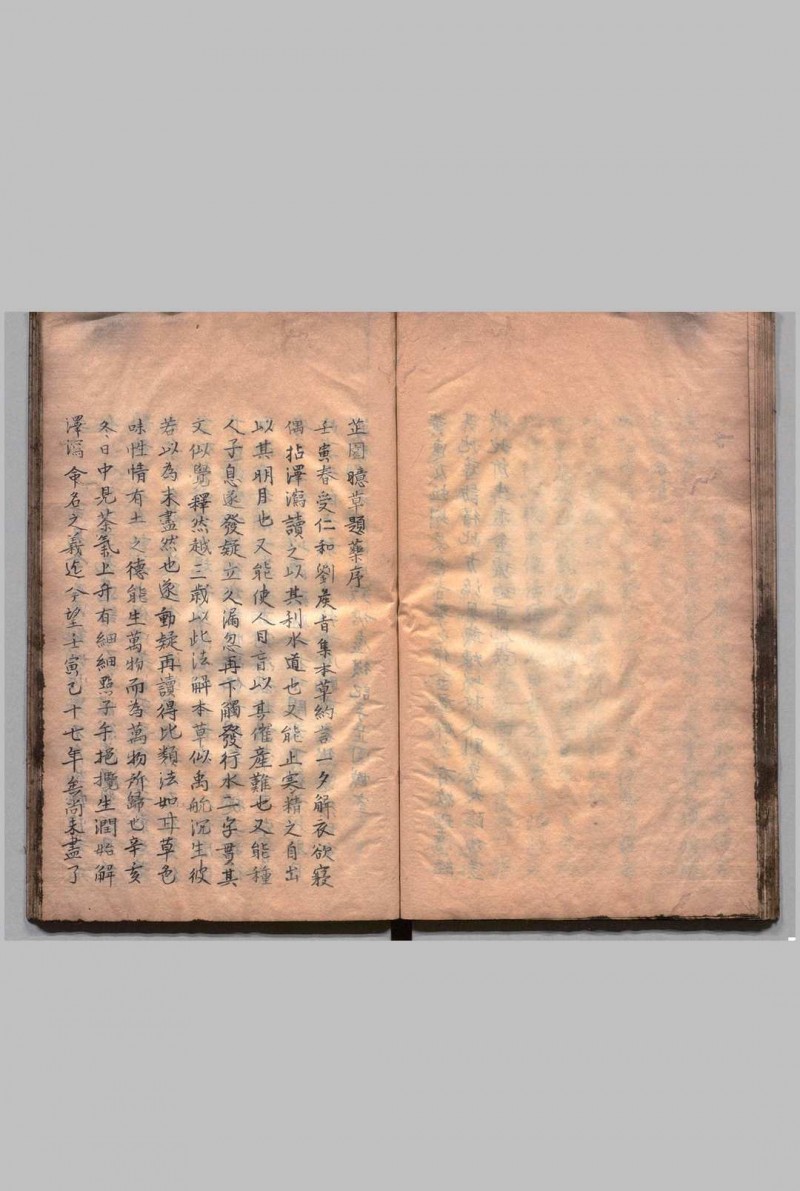 芷園臆草題藥序
壬寅春受仁和劉矦旨集本草約言一夕解衣欲寢
偶拈澤瀉讀之以其利水道也又能止寞精之自出
以其明目也又能使人目盲以其催產難也又能種
人子息遂發疑立久漏忽再下觸發行水二字貫其
文似覺釋然越三歲以此法解本草似禹航沉生彼
若以為未盡然也遂動疑再讀得比類法如甘草色
味性情有土之德能生萬物而為萬物所歸也辛亥
冬日中見茶氣上升有細細點子手挹攬生潤始解
澤瀉命名之義迄今望壬寅已十七年矣尚未盡了